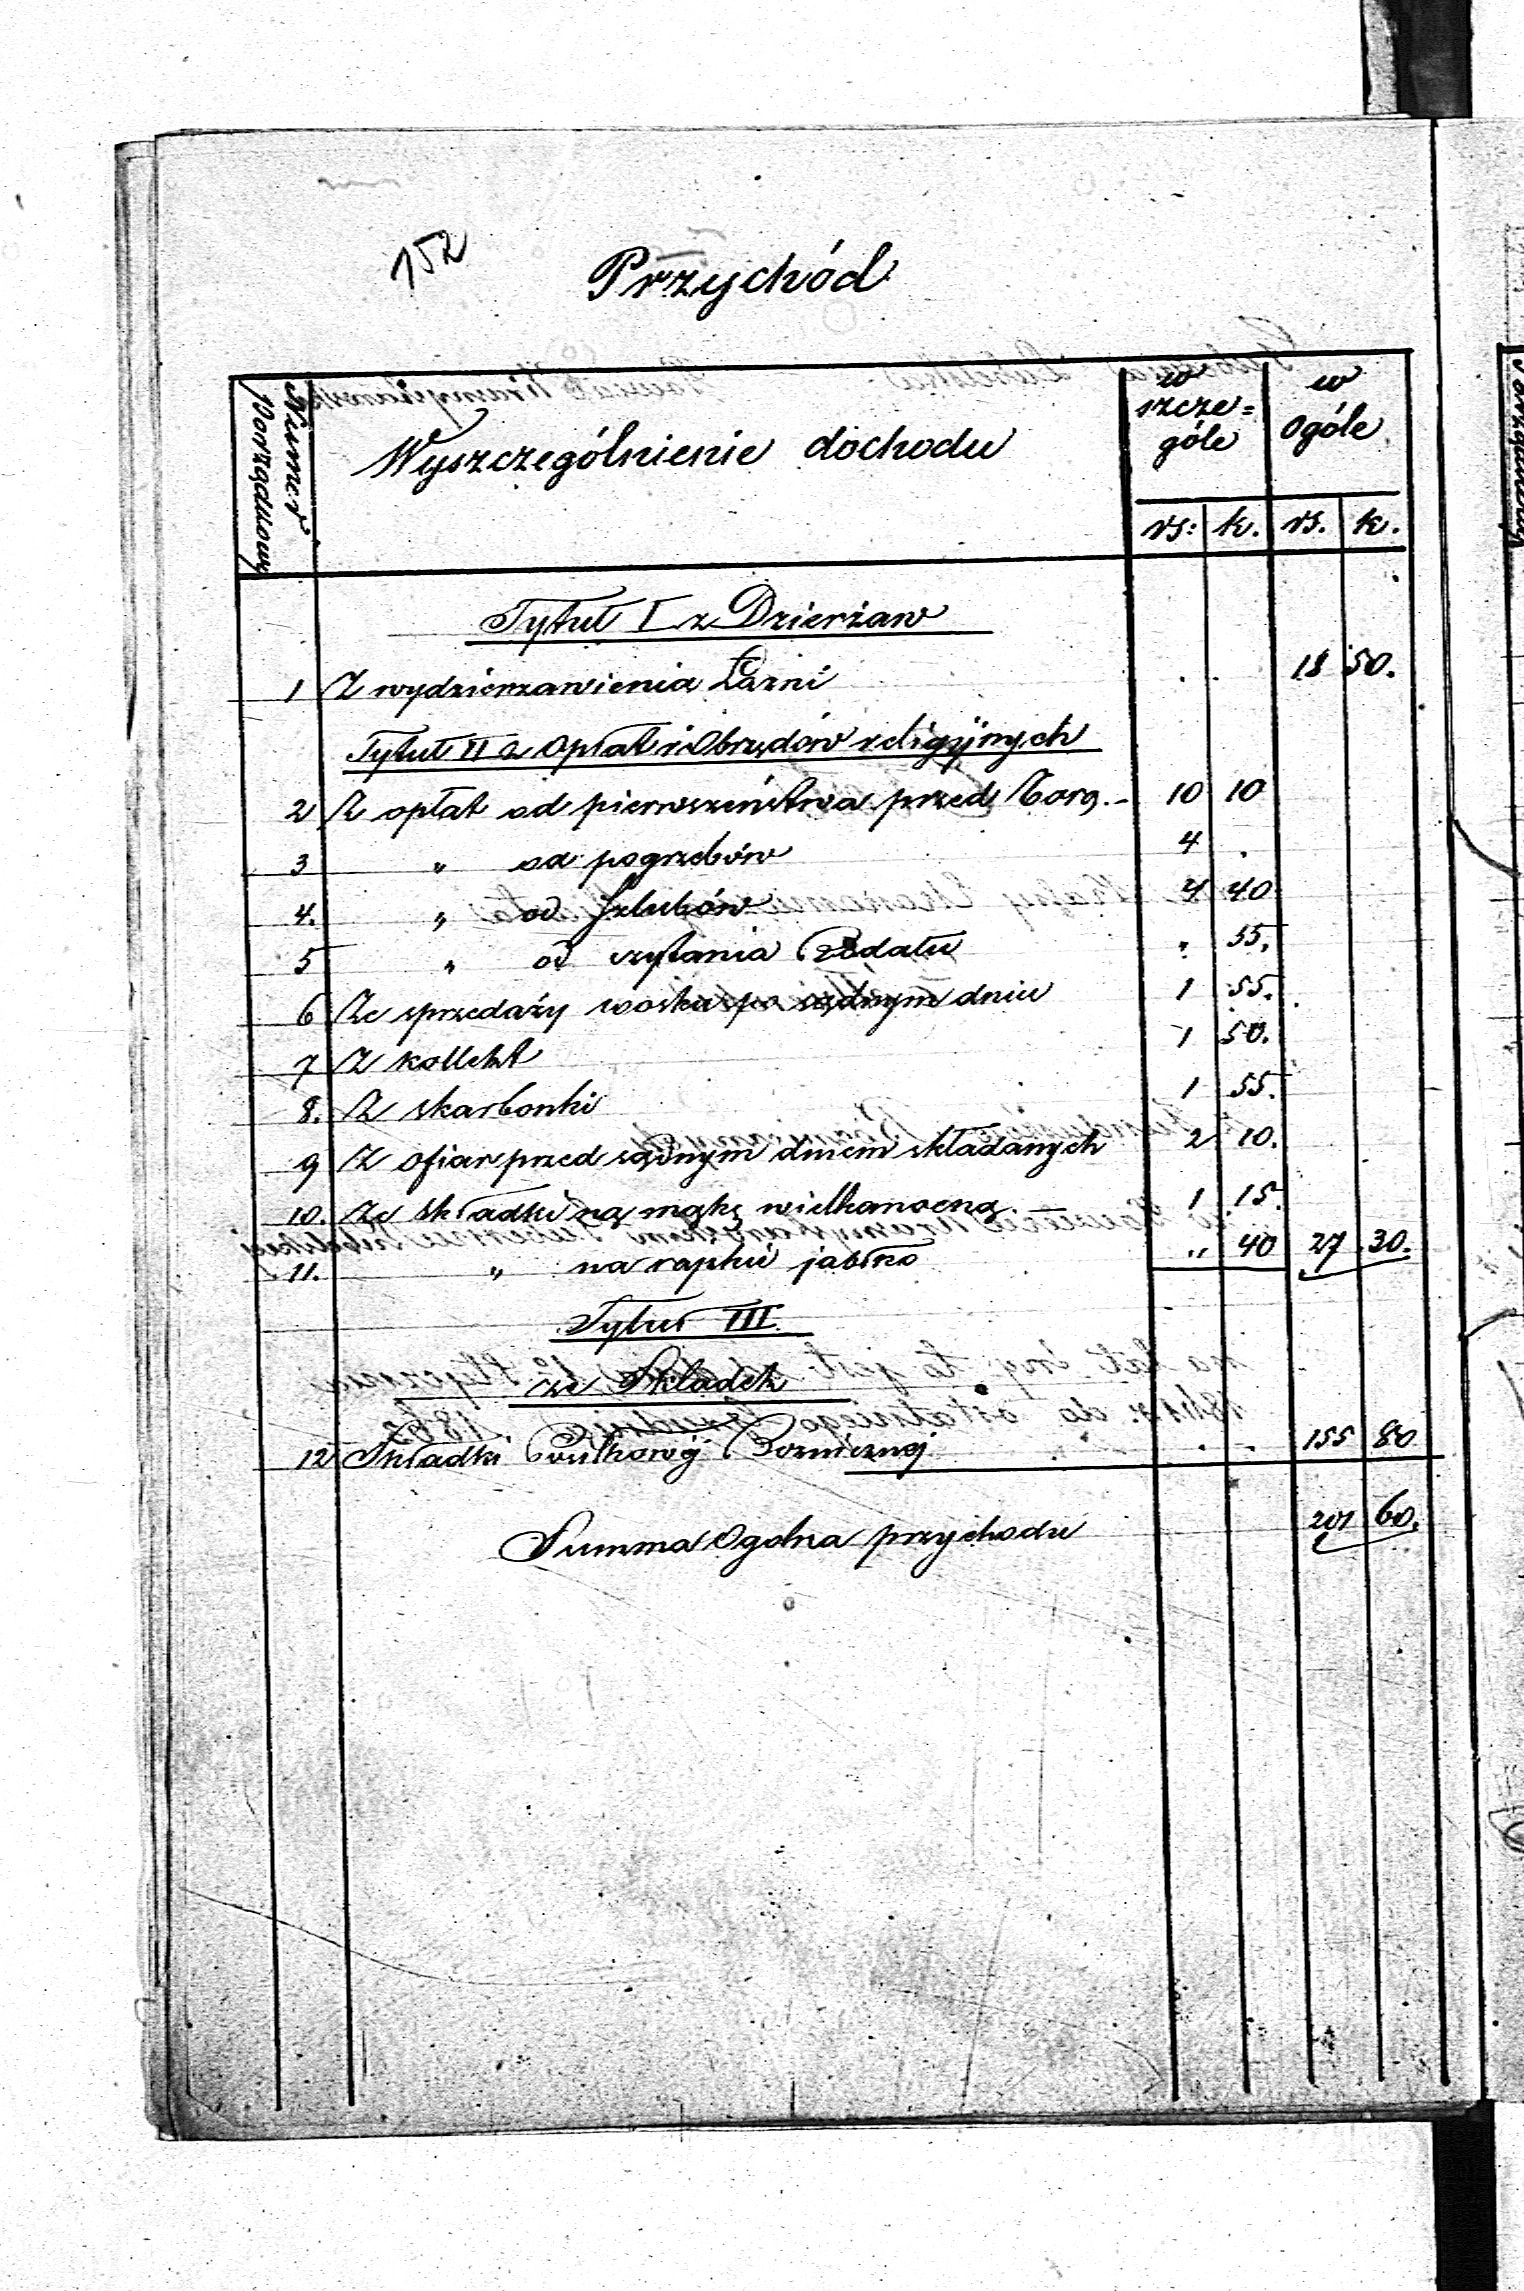 152
Przychód
Numer Porządkowy
Wyszczególnienie dochodu
w szcze=
góle
w
ogóle
rs: k. rs. k.
Tytuł I z Dzierżaw
1 Z wydzierzawienia Łazni . . 18 50.
Tytuł II z Opłat i Obrzędów religijnych
2 Z opłat od pierwszeństwa przed Torą.- 10 10
3 „ od pogrzebów 4 .
4. „ od szlubów 4 40
5 „ od czytania Rodału „ 55.
6 Ze sprzedaży wosku po sądnym dniu 1 55.
7 Z kollekt 1 50.
8. Z skarbonki 1 55.
9 Z ofiar przed sądnym dniem składanych 2 10.
10. Ze składki na mąkę wielkanocną 1 15.
11. „ na rayskie jabłko „ 40 27 30.
Tytuł III.
ze Składek
12 Składki Bożnicznej . . 155 80
Summa Ogolna przychodu 201 60.